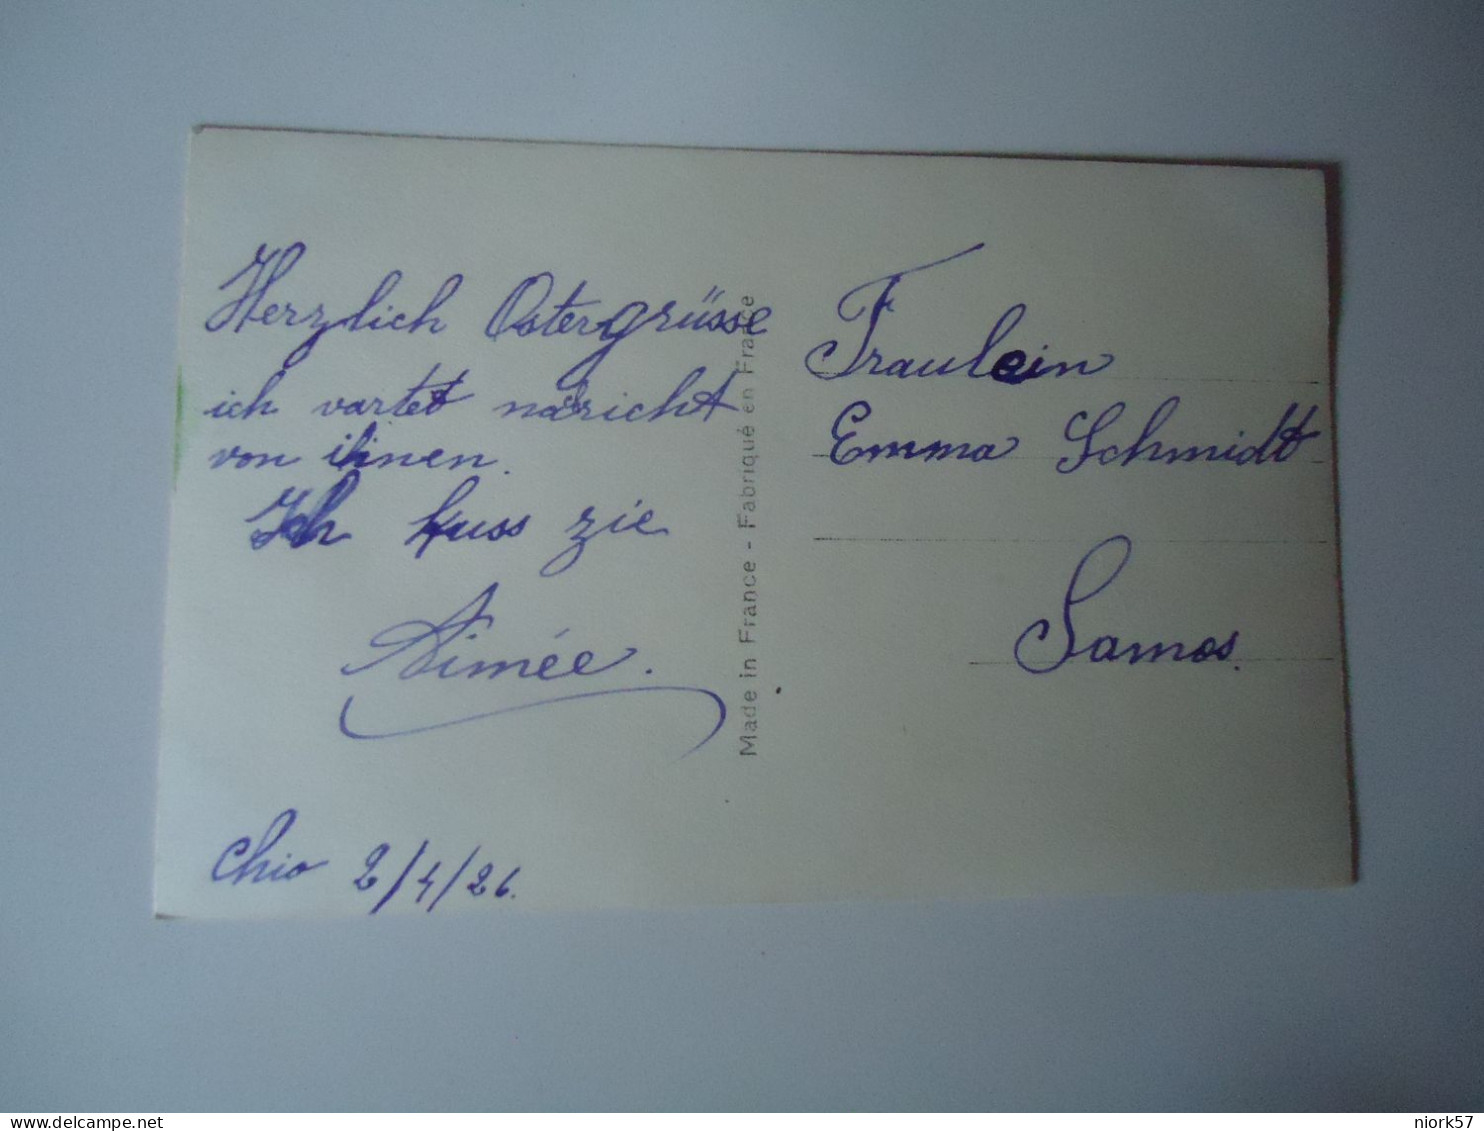 Herzlich Ostergrüsse
ich vartet naricht
von ihnen.
Ich kuss zie
Aimée.
Chio 2/4/26.
Made in France - Fabriqué en France
Fraulein
Emma Schmidt
Samos.
delcampe.net
niork57